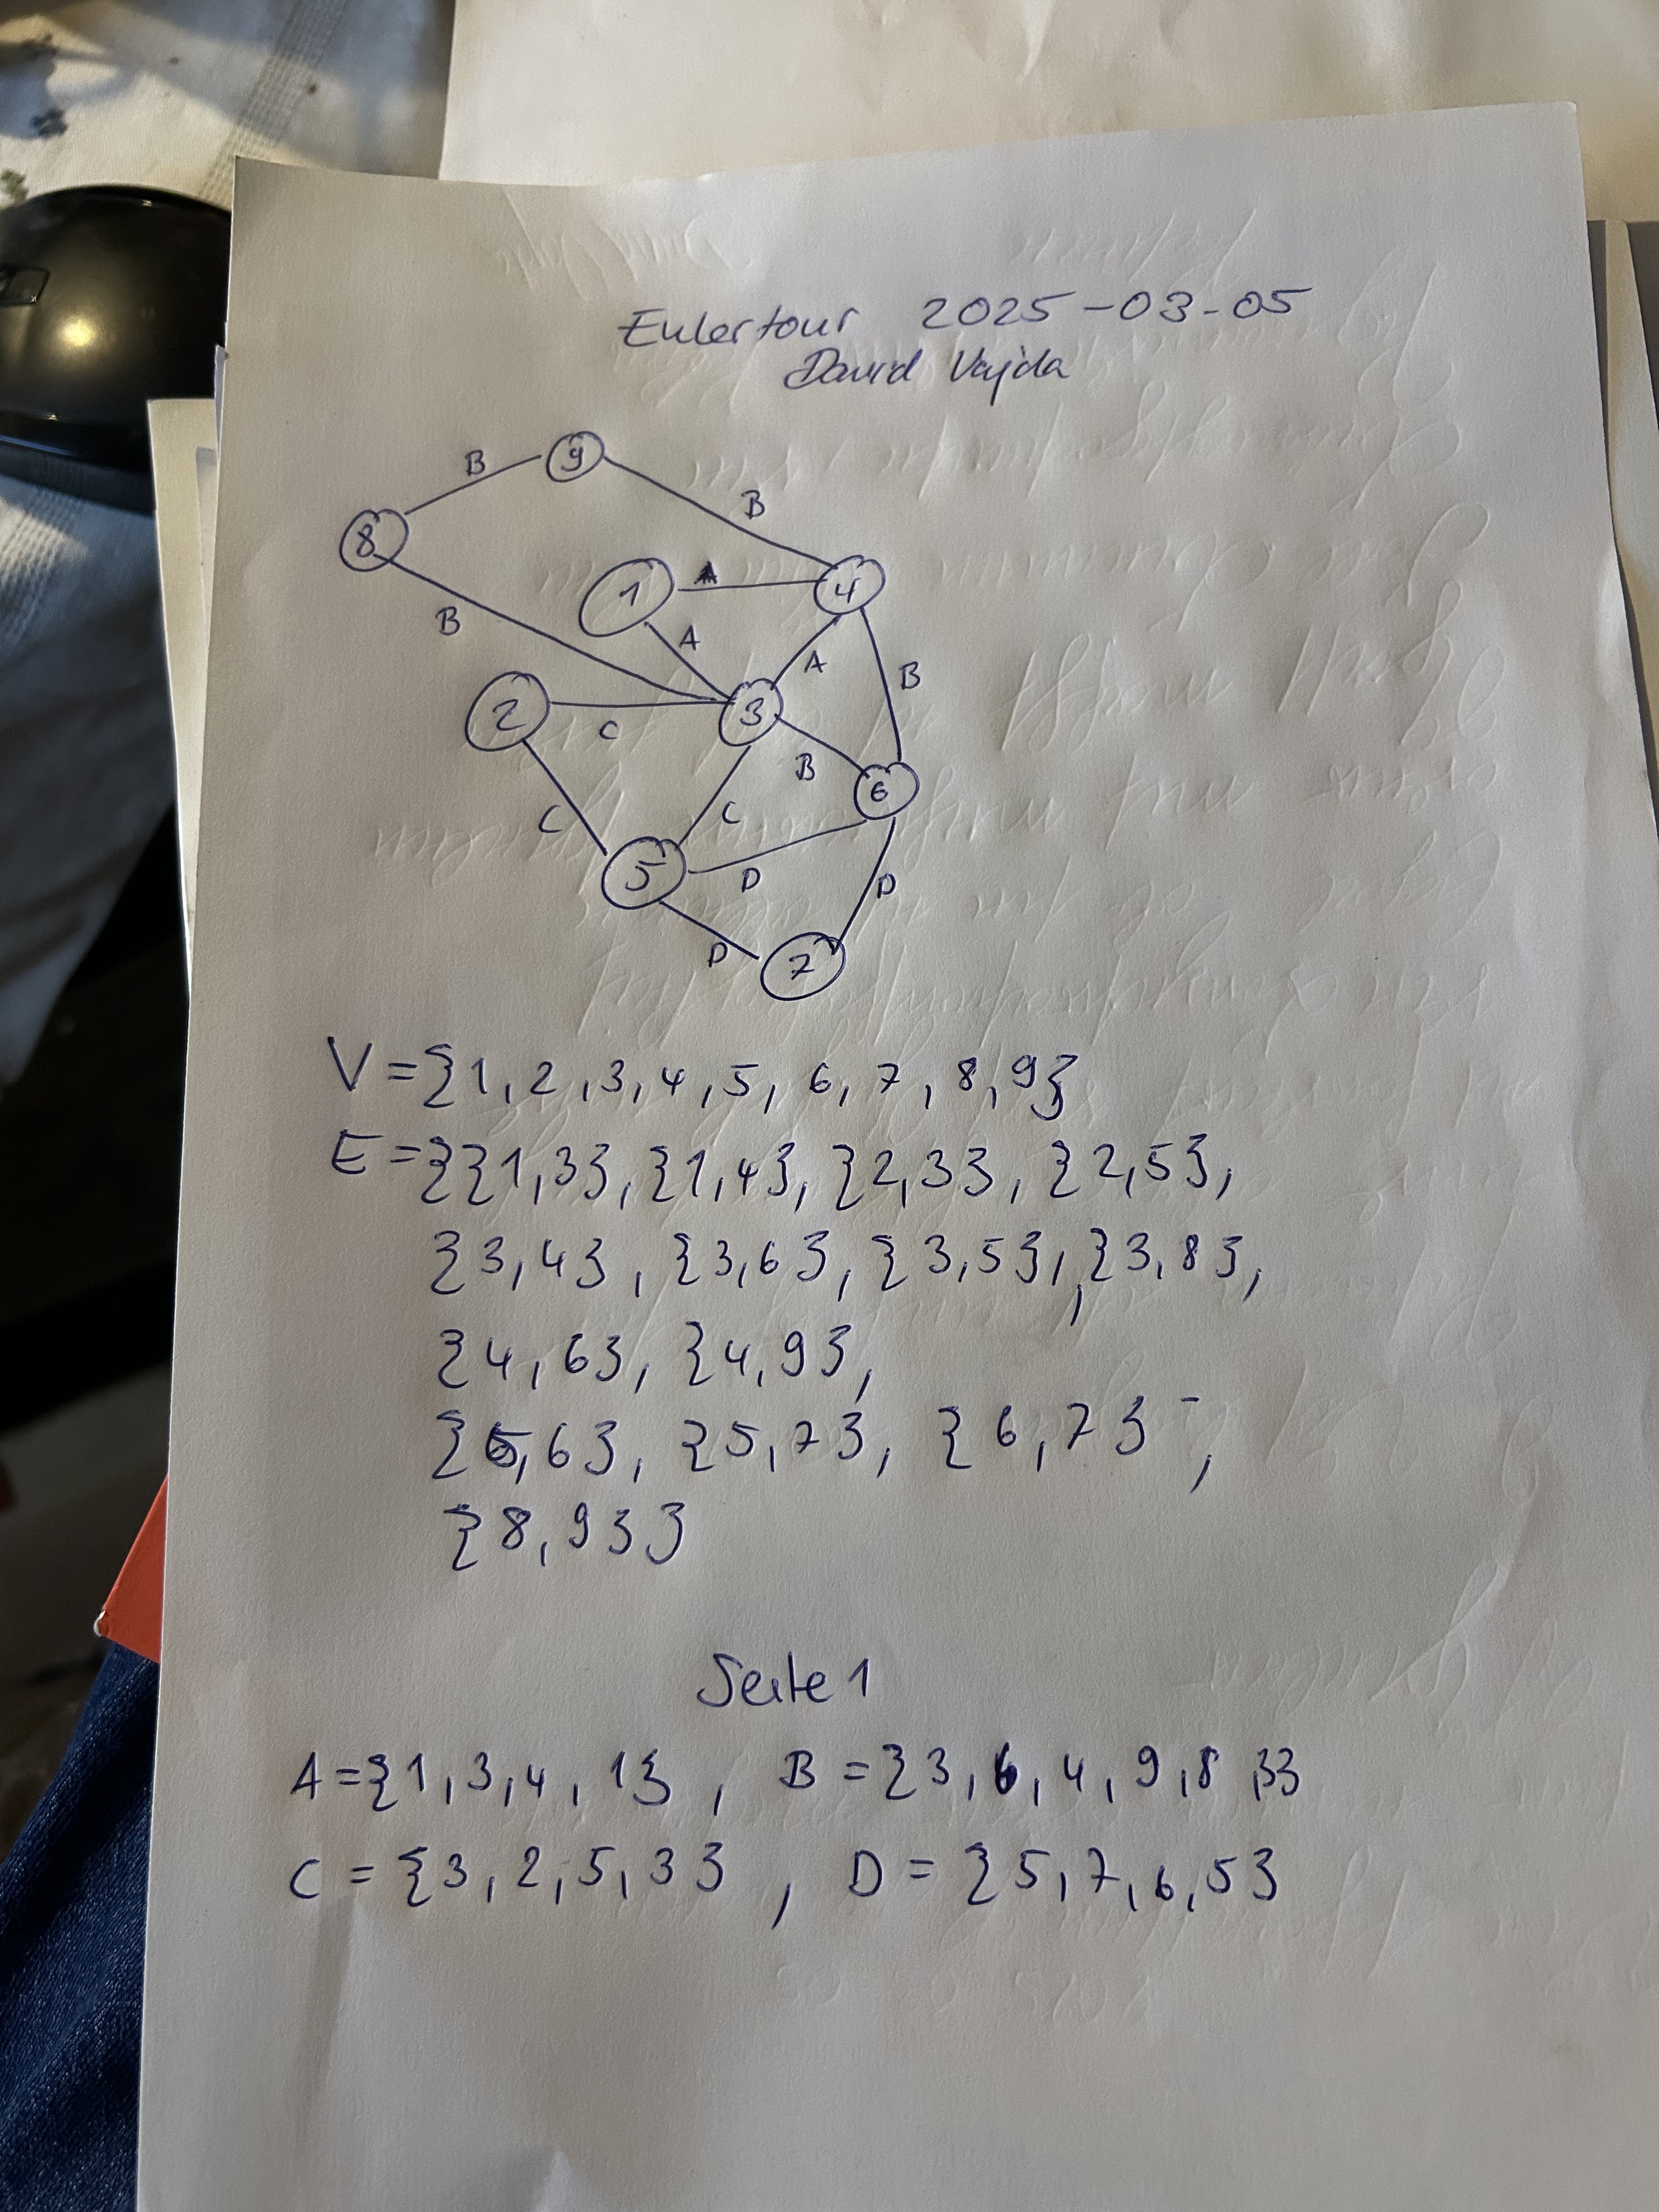 Eulertour 2025-03-05
David Vajda
8 B 9
B B
2 1 A 4
C A A
C 3 B
C B
5 D 6
D 7 D
V = {1, 2, 3, 4, 5, 6, 7, 8, 9}
E = {{1, 3}, {1, 4}, {2, 3}, {2, 5},
{3, 4}, {3, 6}, {3, 5}, {3, 8},
{4, 6}, {4, 9},
{5, 6}, {5, 7}, {6, 7},
{8, 9}}
Seite 1
A = {1, 3, 4, 1}, B = {3, 6, 4, 9, 8, 3}
C = {3, 2, 5, 3}, D = {5, 7, 6, 5}